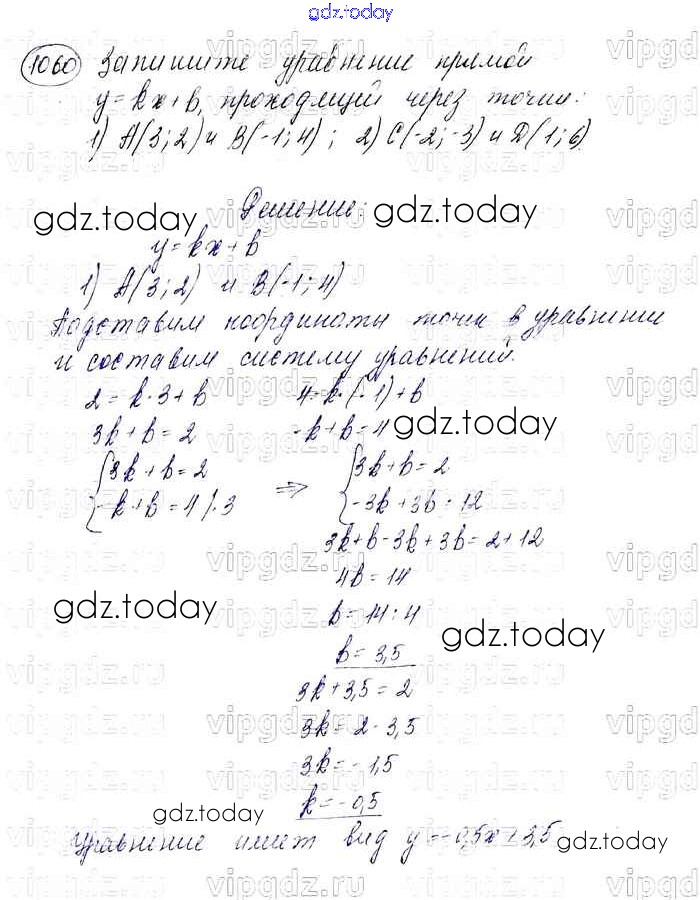 gdz.today
1060 Запишите уравнение прямой
y = kx + b, проходящей через точки:
1) A(3; 2) и B(-1; 4) ; 2) C(-2; -3) и D(1; 6)
Решение:
gdz.today gdz.today
y = kx + b
1) A(3; 2) и B(-1; 4)
Подставим координаты точек в уравнение
и составим систему уравнений.
2 = k · 3 + b 4 = k · (-1) + b
3k + b = 2 -k + b = 4 gdz.today
{ 3k + b = 2 { 3k + b = 2
{ -k + b = 4 | · 3 ⇒ { -3k + 3b = 12
3k + b - 3k + 3b = 2 + 12
4b = 14
gdz.today b = 14 : 4
gdz.today
b = 3,5
3k + 3,5 = 2
3k = 2 - 3,5
3k = -1,5
k = -0,5
gdz.today
Уравнение имеет вид y = -0,5x + 3,5 gdz.today
vipgdz.ru